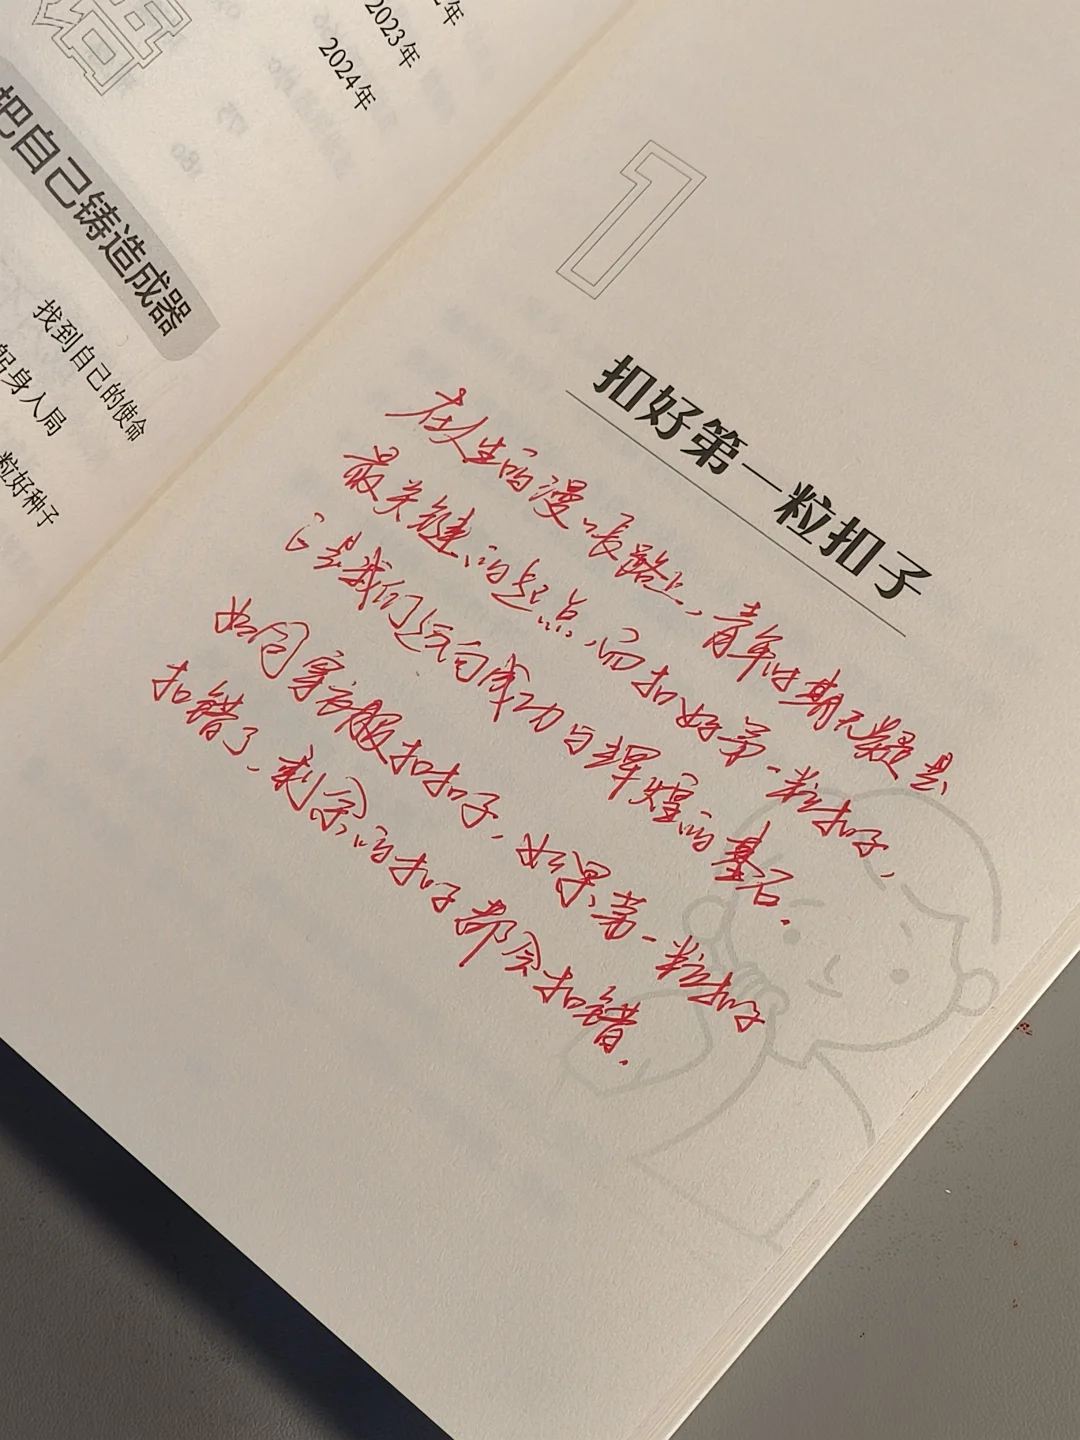 2023年
2024年
把自己铸造成器
找到自己的使命
躬身入局
粒好种子
1
扣好第一粒扣子
在人生的漫长路上，青年时期无疑是
最关键的起点，而扣好第一粒扣子，
是我们迈向成功与辉煌的基石。
如同穿衣服扣扣子，如果第一粒扣子
扣错了，剩余的扣子都会扣错。